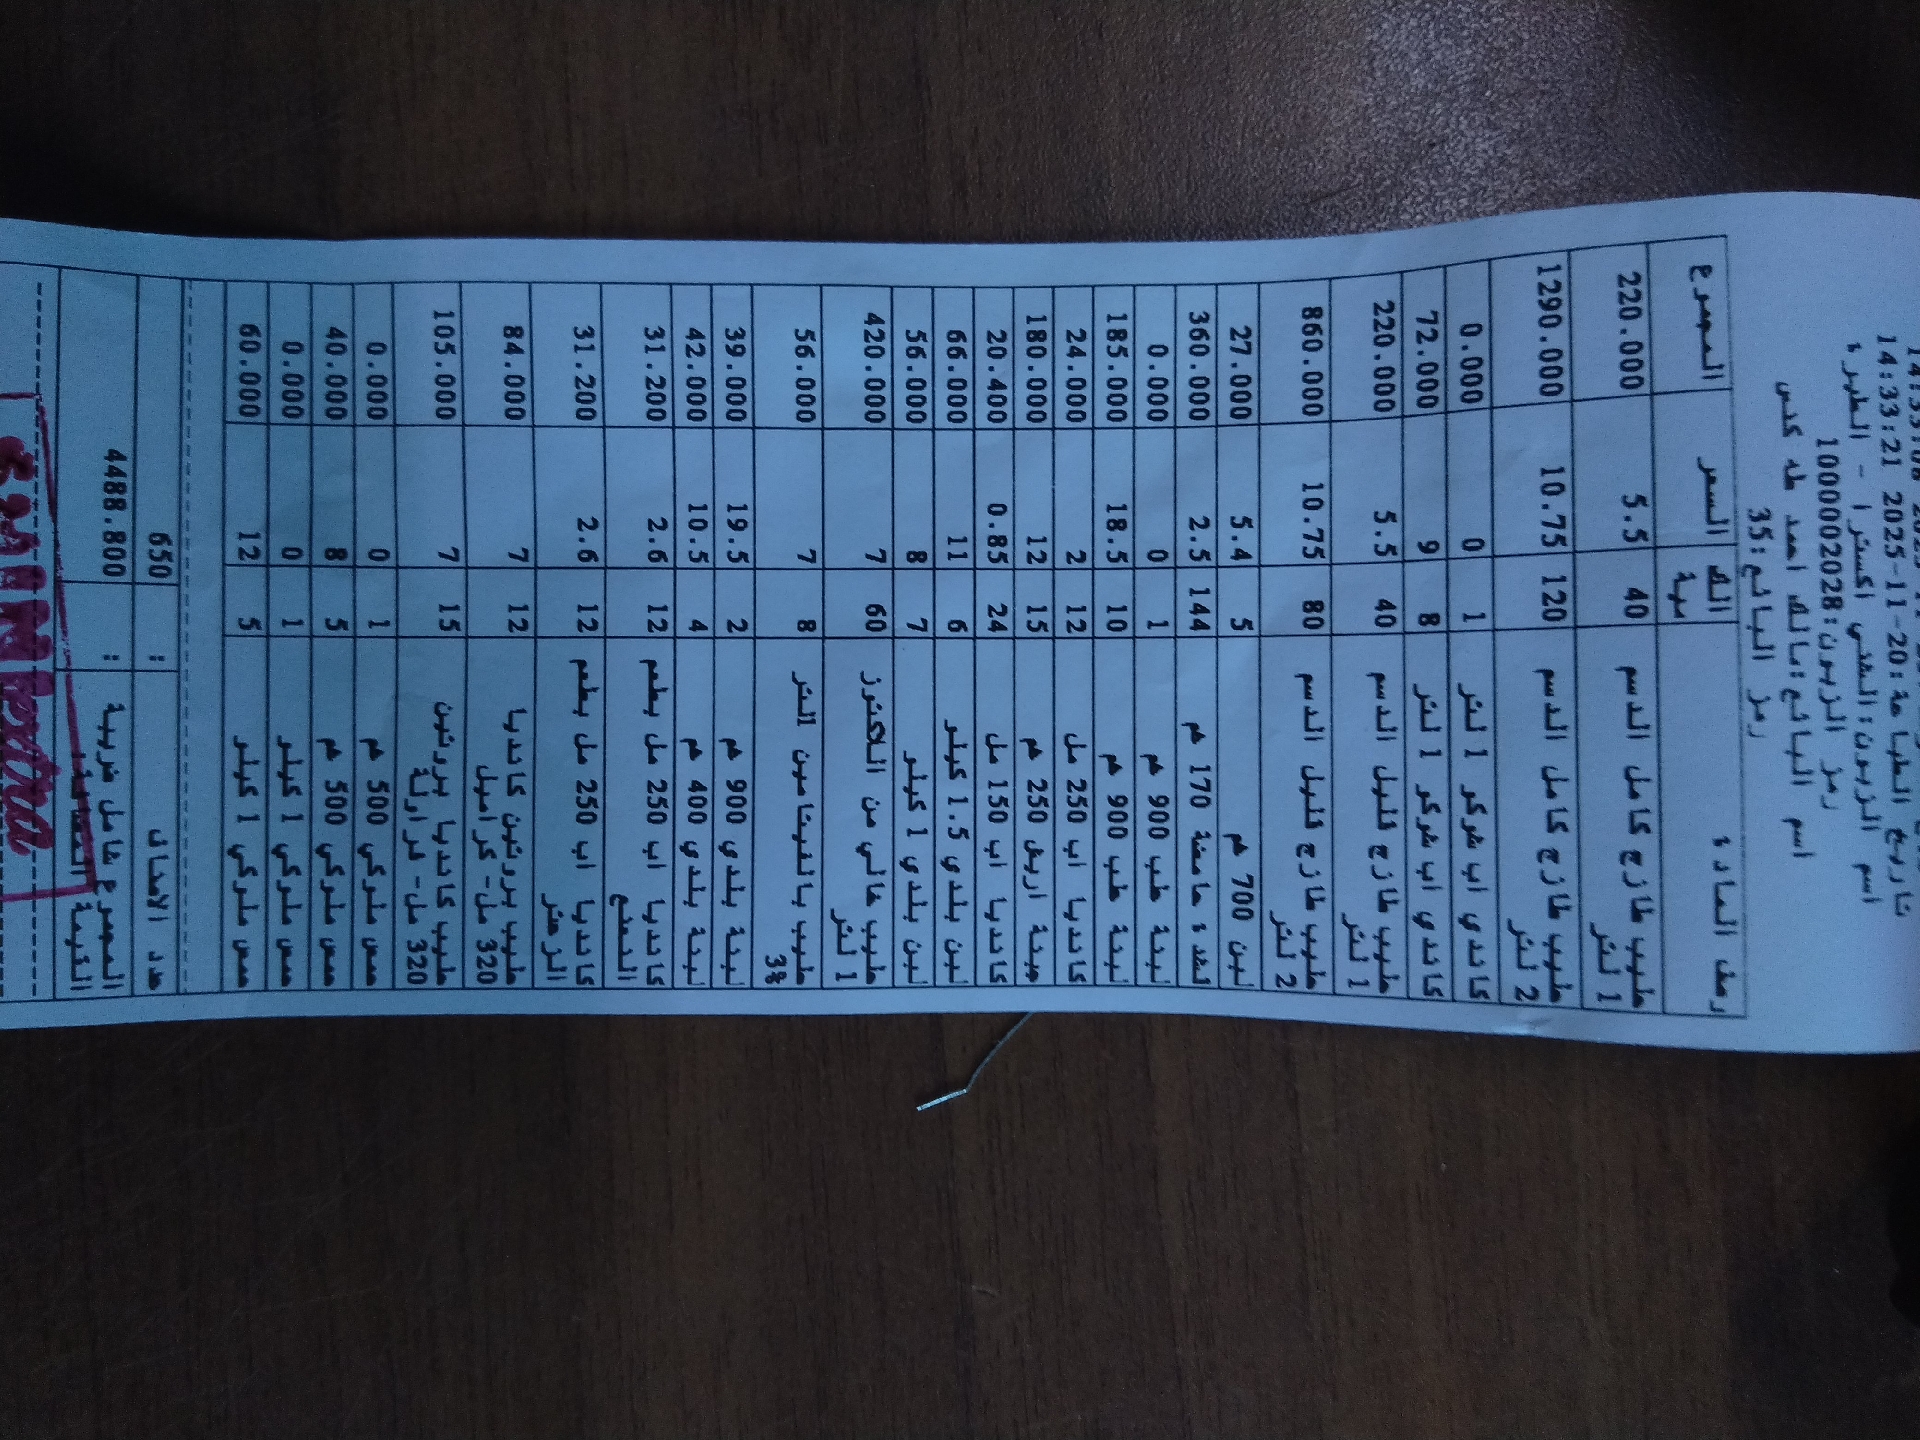 تاريخ الطباعة:20-11-2025 14:33:21
اسم الزبون:الشني اكسترا - الطيره
رمز الزبون:1000002028
اسم البائع:مالك احمد طه كنس
رمز البائع:35
وصف المادة الكمية السعر المجموع
حليب طازج كامل الدسم 1 لتر 40 5.5 220.000
حليب طازج كامل الدسم 2 لتر 120 10.75 1290.000
كاندي اب شوكو 1 لتر 1 0 0.000
كاندي اب شوكو 1 لتر 8 9 72.000
حليب طازج قليل الدسم 1 لتر 40 5.5 220.000
حليب طازج قليل الدسم 2 لتر 80 10.75 860.000
لبن 700 غم 5 5.4 27.000
قشدة حامضة 170 غم 144 2.5 360.000
لبنة علب 900 غم 1 0 0.000
لبنة علب 900 غم 10 18.5 185.000
كانديا اب 250 مل 12 2 24.000
جبنة اريش 250 غم 15 12 180.000
كانديا اب 150 مل 24 0.85 20.400
لبن بلدي 1.5 كيلو 6 11 66.000
لبن بلدي 1 كيلو 7 8 56.000
حليب خالي من اللكتوز 1 لتر 60 7 420.000
حليب بالفيتامين اللتر 3% 8 7 56.000
لبنة بلدي 900 غم 2 19.5 39.000
لبنة بلدي 400 غم 4 10.5 42.000
كانديا اب 250 مل بطعم النعنع 12 2.6 31.200
كانديا اب 250 مل بطعم الزعتر 12 2.6 31.200
حليب بروتين كانديا 320 مل-كراميل 12 7 84.000
حليب كانديا بروتين 320 مل-فراولة 15 7 105.000
حمص ملوكي 500 غم 1 0 0.000
حمص ملوكي 500 غم 5 8 40.000
حمص ملوكي 1 كيلو 1 0 0.000
حمص ملوكي 1 كيلو 5 12 60.000
عدد الاصناف : 650
المجموع شامل ضريبة القيمة المضافة : 4488.800